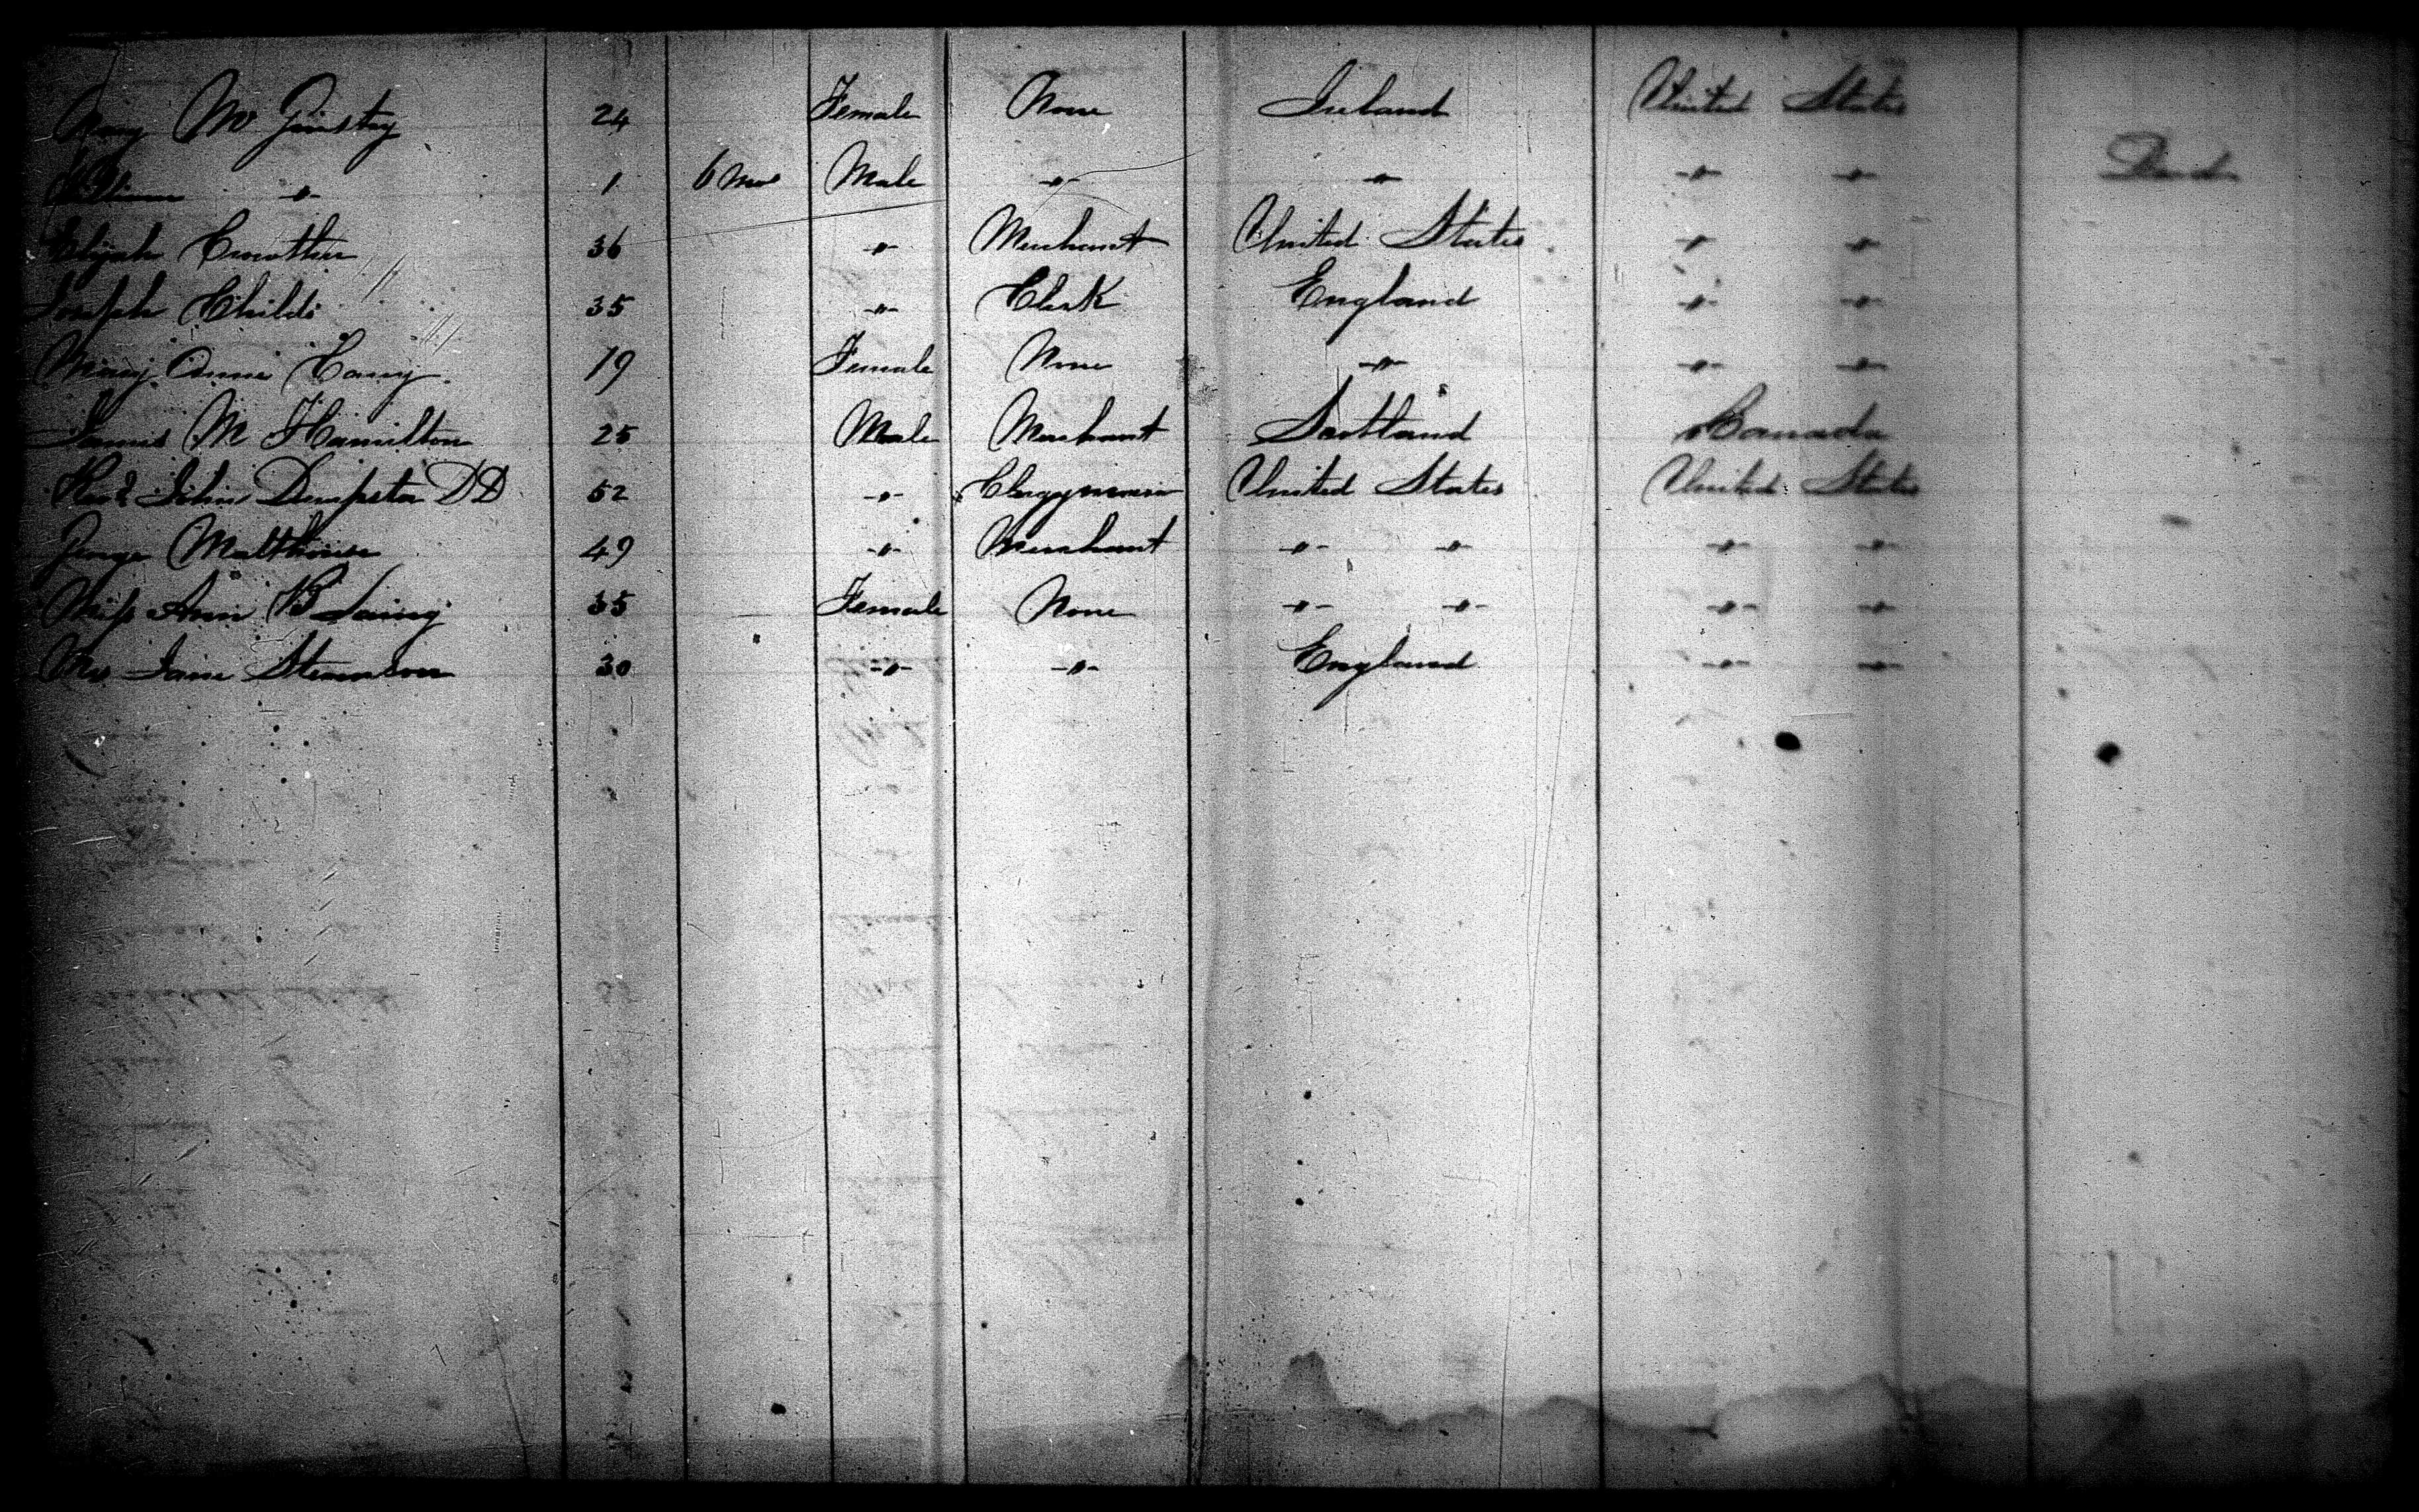 Mary Mc Ginsty 24 Female None Ireland United States
William -"- 1 6 Mos Male -"- -"- -"- -"- Died
Elijah Crowther 36 -"- Merchant United States -"- -"-
Joseph Childs 35 -"- Clerk England -"- -"-
Mary Anne 19 Female None -"- -"- -"-
James M Hamilton 25 Male Merchant Scotland Canada
Revd John Dempster DD 52 -"- Clergyman United States United States
George Malthouse 49 -"- Merchant -"- -"- -"- -"-
Miss Ann B Laing 35 Female None -"- -"- -"- -"-
Mrs Jane Stevenson 30 -"- -"- England -"- -"-